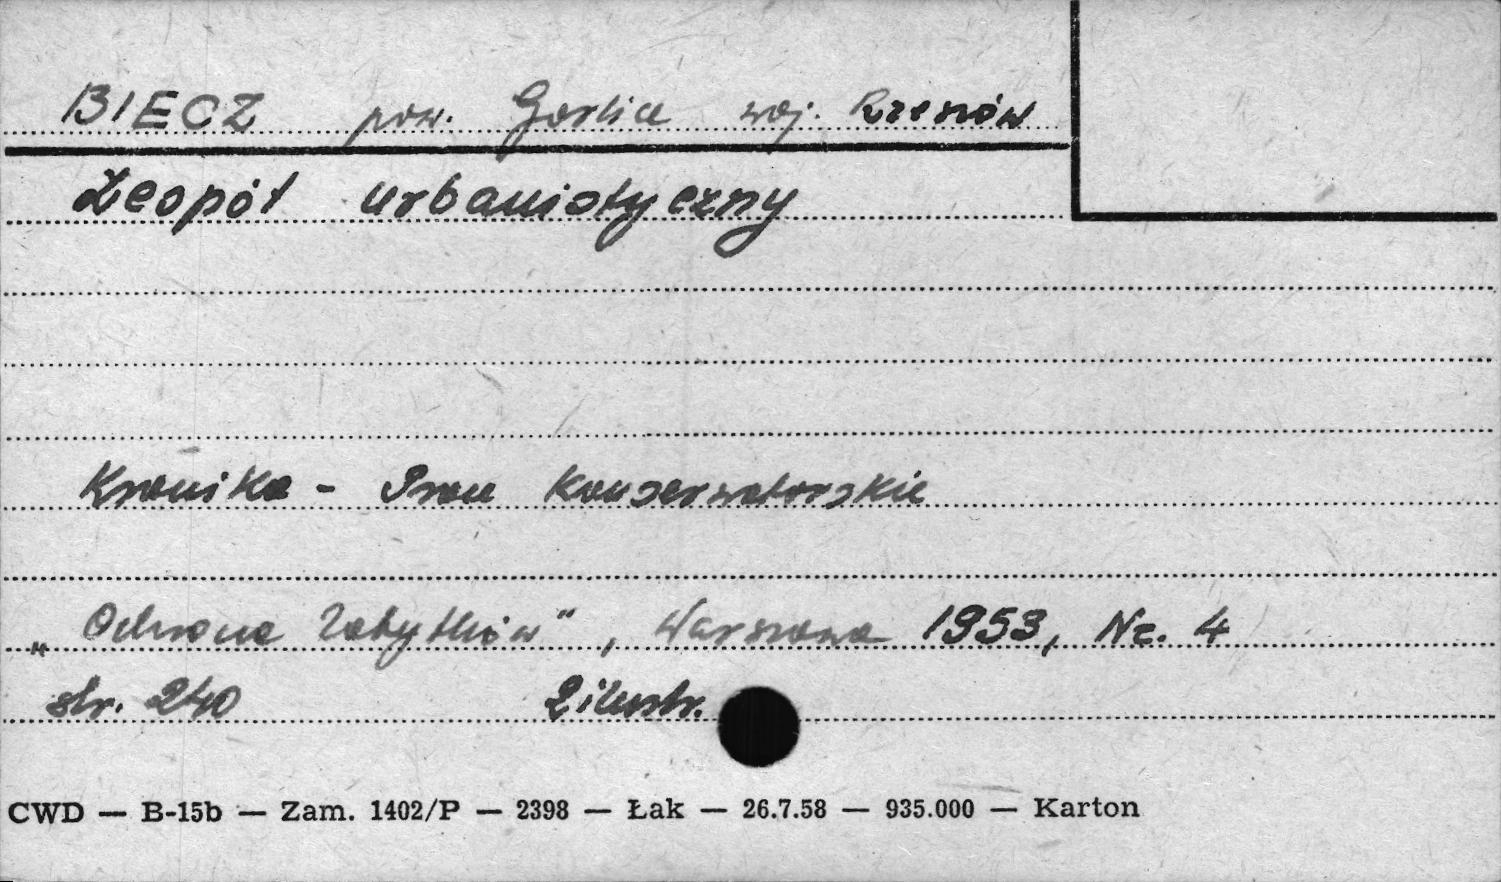 BIECZ pow. Gorlice woj. Rzeszów
Zespół urbanistyczny
Kronika - Prace Konserwatorskie
„Ochrona Zabytków", Warszawa 1953, Nr. 4
str. 240 2 ilustr.
CWD — B-15b — Zam. 1402/P — 2398 — Łak — 26.7.58 — 935.000 — Karton